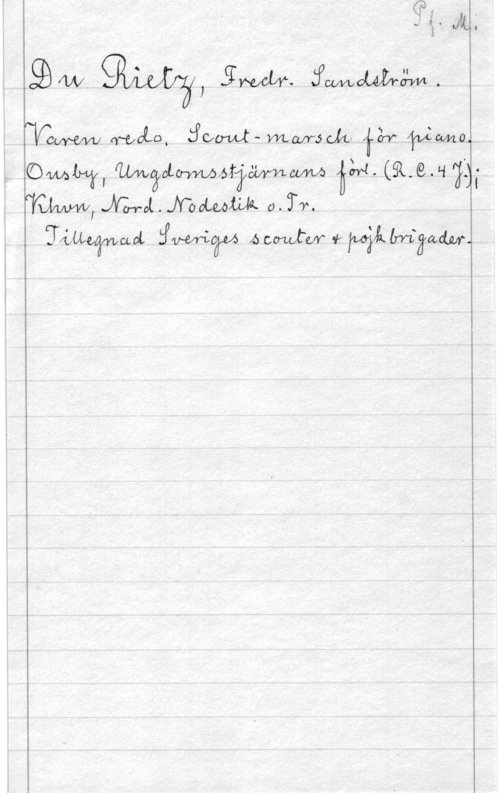 Pf. M.
Du Rietz, Fredr. Sandström.
Varen redo. Scout-marsch för piano.
Ousby, Ungdomsstjärnans förl. (R. C. 4 J.);
Khvn, Nord. Nodestik o. Tr.
Tillegnad Sveriges scouter & pojkbrigader.